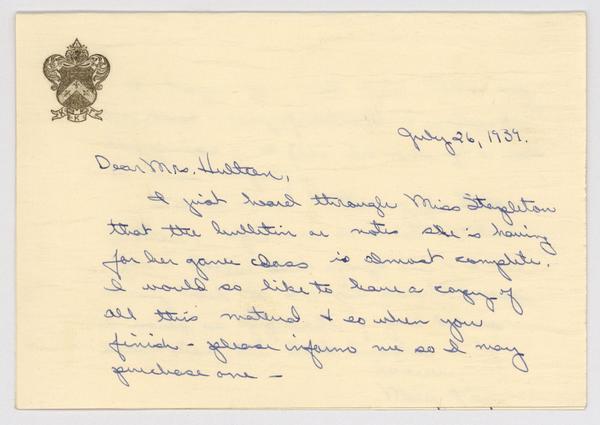 July 26, 1939.
Dear Mrs. Hultan,
I just heard through Miss Stapleton
that the bulletin or notes she is having
for her game class is almost complete.
I would so like to have a copy of
all this material & so when you
finish - please inform me so I may
purchase one -